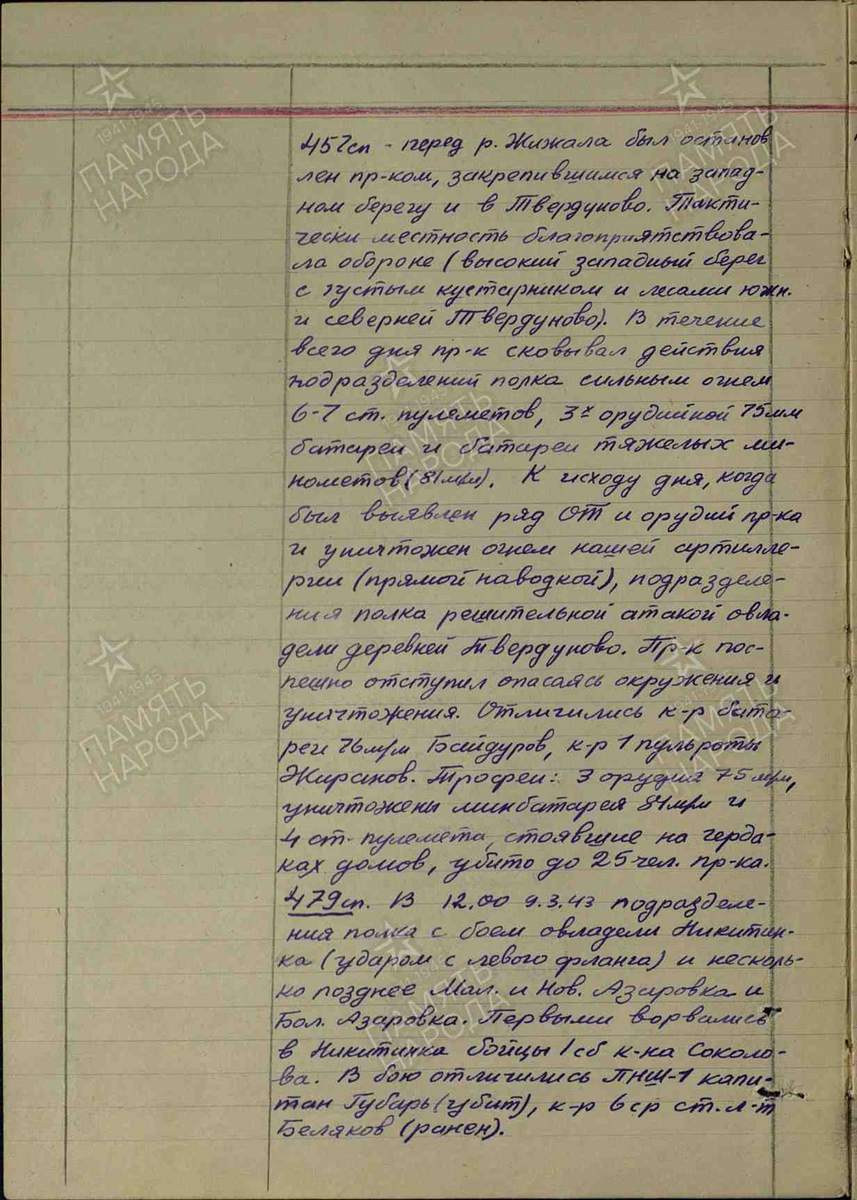 457сп - перед р. Жижала был останов
лен пр-ком, закрепившимся на запад-
ном берегу и в Твердуново. Такти-
чески местность благоприятствова-
ла обороне (высокий западный берег
с густым кустарником и лесами южн.
и северней Твердуново). В течение
всего дня пр-к сковывал действия
подразделений полка сильным огнем
6-7 ст. пулеметов, 3х орудийной 75мм
батареи и батареи тяжелых ми-
нометов (81м/м). К исходу дня, когда
был выявлен ряд ОТ и орудий пр-ка
и уничтожен огнем нашей артилле-
рии (прямой наводкой), подразделе-
ния полка решительной атакой овла-
дели деревней Твердуново. Пр-к пос-
пешно отступил опасаясь окружения и
уничтожения. Отличились к-р бата-
реи 76м/м Байдуров, к-р 1 пульроты
Жиранов. Трофеи: 3 орудия 75м/м,
уничтожены минбатарея 81м/м и
4 от. пулемета, стоявшие на черда-
ках домов, убито до 25 чел. пр-ка.
479сп. В 12.00 9.3.43 подразделе-
ния полка с боем овладели Никитин-
ка (ударом с левого фланга) и несколь-
ко позднее Мал. и Нов. Азаровка и
Бол. Азаровка. Первыми ворвались
в Никитинка бойцы 1сб к-на Соколо-
ва. В бою отличились ПНШ-1 капи-
тан Губарь (убит), к-р 6ср ст. л-т
Беляков (ранен).
1941-1945
ПАМЯТЬ
НАРОДА